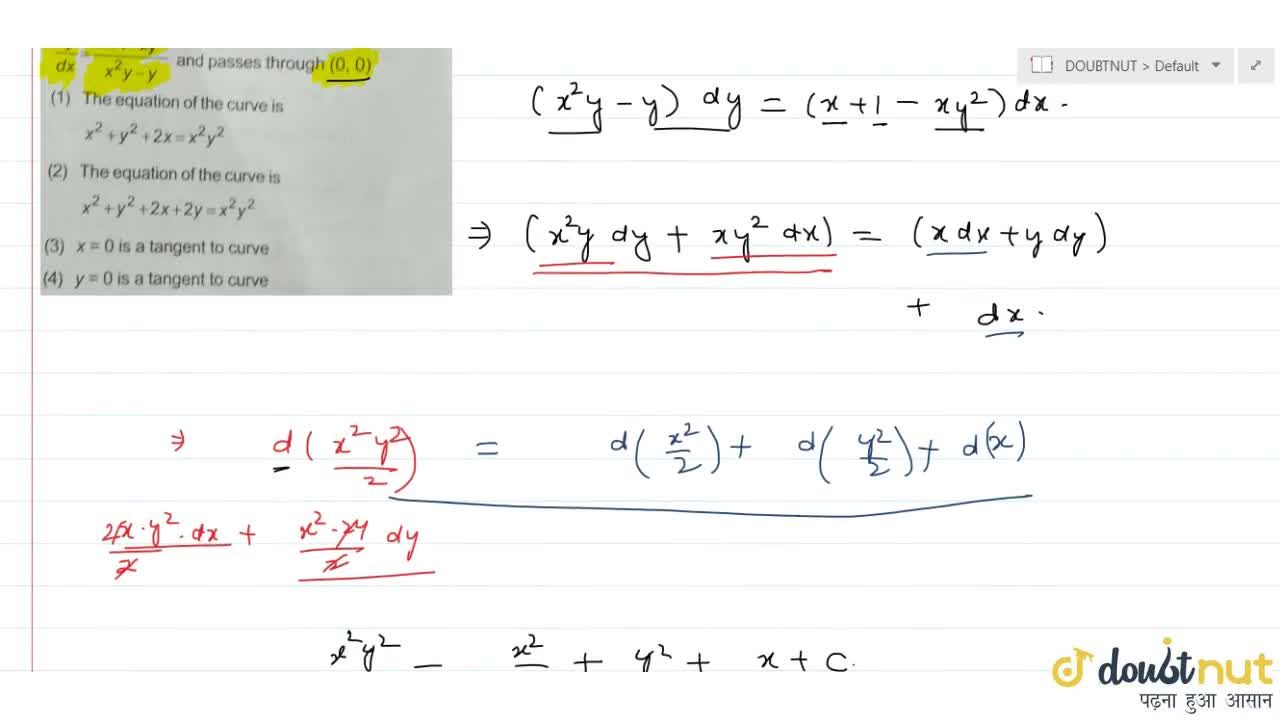 dy/dx = x²y − y and passes through (0, 0)
(1) The equation of the curve is
x² + y² + 2x = x²y²
(2) The equation of the curve is
x² + y² + 2x + 2y = x²y²
(3) x = 0 is a tangent to curve
(4) y = 0 is a tangent to curve
DOUBTNUT > Default
(x²y − y) dy = (x + 1 − xy²) dx.
⇒ (x²y dy + xy² dx) = (x dx + y dy)
+ dx.
⇒ d(x²y²/2) = d(x²/2) + d(y²/2) + d(x)
2x·y²·dx/2 + x²·2y/2 dy
x²y² − x² + y² + x + C.
doubtnut
पढ़ना हुआ आसान